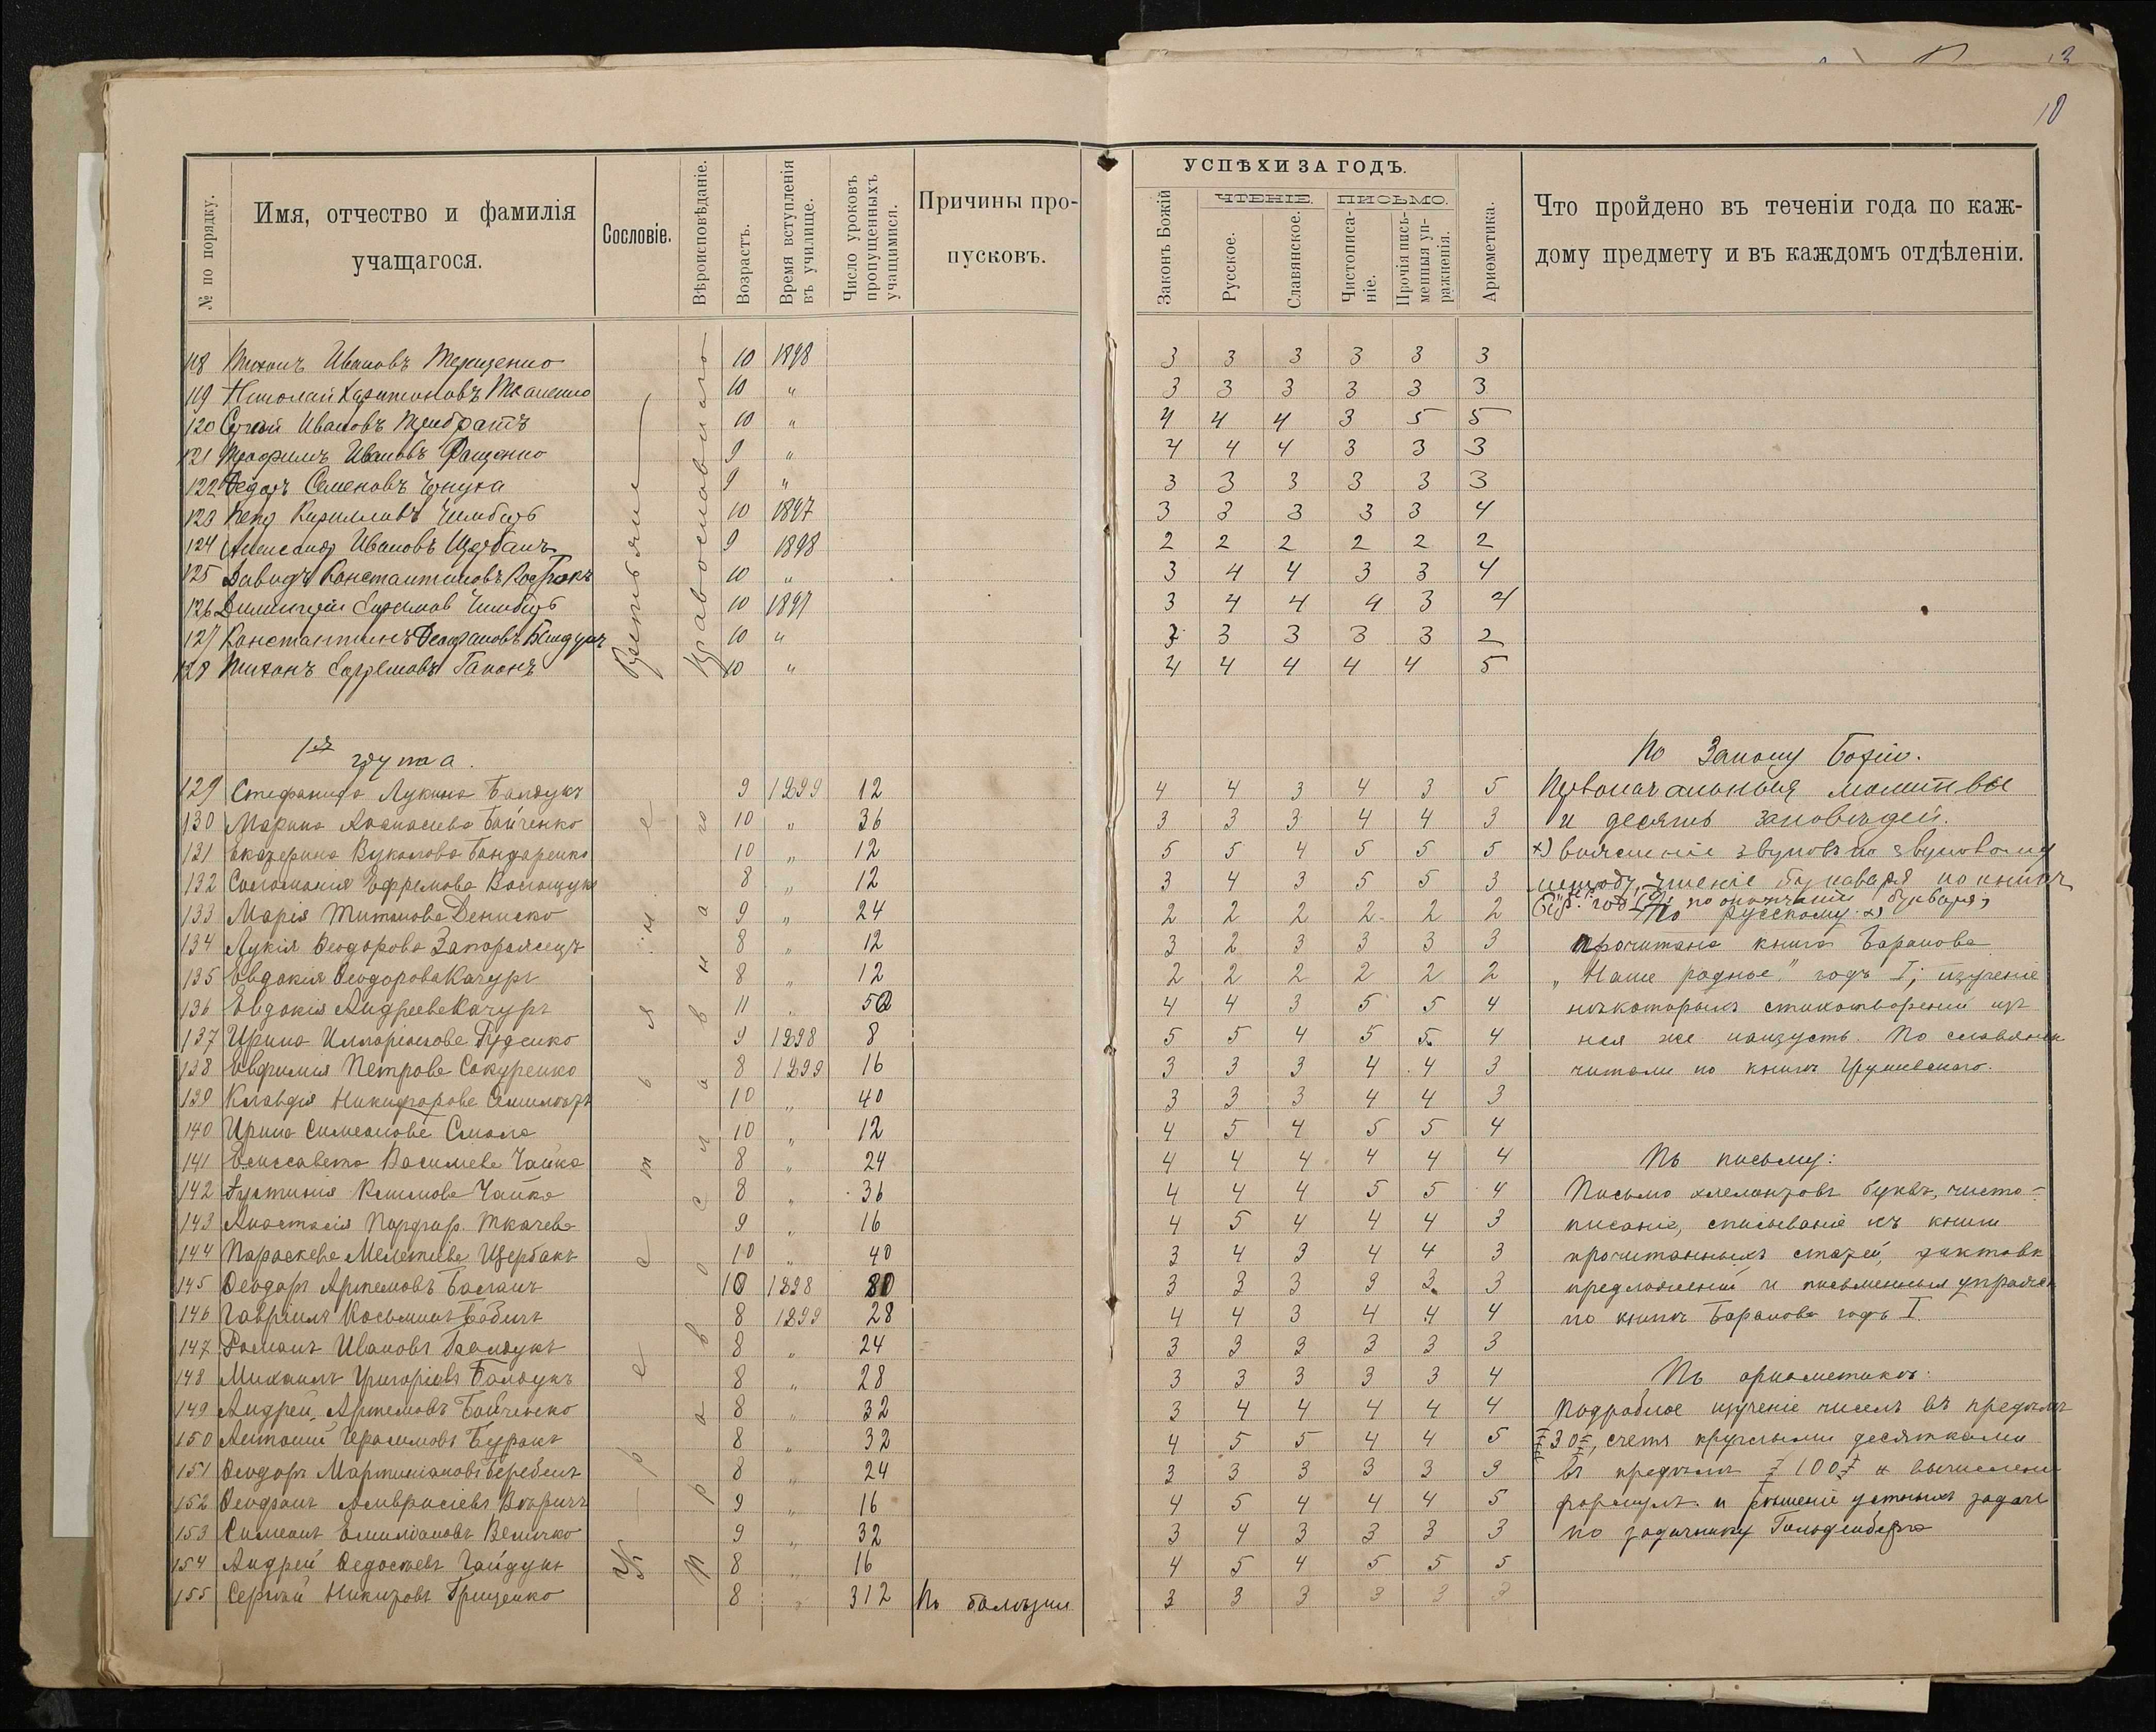 10
№ по порядку.
Имя, отчество и фамилія учащагося.
Сословіе.
Вѣроисповѣданіе.
Возрастъ.
Время вступленія въ училище.
Число уроковъ пропущенныхъ учащимися.
Причины пропусковъ.
УСПѢХИ ЗА ГОДЪ.
Законъ Божій
ЧТЕНІЕ.
Русское.
Славянское.
ПИСЬМО.
Чистописаніе.
Прочія письменныя упражненія.
Ариѳметика.
Что пройдено въ теченіи года по каждому предмету и въ каждомъ отдѣленіи.
Крестьяне
Православнаго
118 Тихонъ Ивановъ Терещенко 10 1898 3 3 3 3 3 3
119 Николай Харитоновъ Ткаченко 10 " 3 3 3 3 3 3
120 Сергѣй Ивановъ 10 " 4 4 4 3 5 5
121 Трофимъ Ивановъ 9 " 4 4 4 3 3 3
122 Ѳедоръ Семеновъ 9 " 3 3 3 3 3 3
123 Петр Кирилловъ 10 1897 3 3 3 3 3 4
124 Александр Ивановъ Щербакъ 9 1898 2 2 2 2 2 2
125 Давидъ Константиновъ 10 " 3 4 4 3 3 4
126 Димитрій 10 1897 3 4 4 4 3 4
127 Константинъ Ѳеофановъ 10 " 3 3 3 3 2
128 Тихонъ Ефремовъ Гапонъ 10 " 4 4 4 4 4 5
1я група.
По Закону Божію.
129 Стефанида Лукина Балдукъ 9 1899 12 4 4 3 4 3 5 Первоначальныя молитвы
130 Марина Аѳанасіева Бойченко 10 " 36 3 3 3 4 4 3 и десять заповѣдей.
131 Екатерина Вуколова Бондаренко 10 " 12 5 5 4 5 5 5 звуковъ по звуковому
132 Соломонія Ефремова 8 " 12 3 4 3 5 5 3 методу, чтеніе букваря по книгѣ
133 Марія Титовова Дениско 9 " 24 2 2 2 2 2 2 по окончаніи букваря, По русскому
134 Лукія Ѳеодорова Запорожецъ 8 " 12 3 2 3 3 3 3 прочитана книга Баранова
135 Евдокія Ѳеодорова Качуръ 8 " 12 2 2 2 2 2 2 „Наше родное" годъ I; изученіе
136 Евдокія Андреева Качуръ 11 " 4 4 3 5 5 4 нѣкоторыхъ стихотвореній изъ
137 Ирина Илларіонова Руденко 9 1898 8 5 5 4 5 5 4 нея же наизусть. По славянски
138 Евфимія Петрова Сокуренко 8 1899 16 3 3 3 4 4 3 читали по книгѣ Грушевскаго.
139 Клавдія Никифорова 10 " 40 3 3 3 4 4 3
140 Ирина Симеонова Смола 10 " 12 4 5 4 5 5 4
141 Елисавета Васильева Чайка 8 " 24 4 4 4 4 4 4 По письму:
142 Іустинія Климова Чайка 8 " 36 4 4 4 5 5 4 Письмо элементовъ буквъ, чисто-
143 Анастасія Порфир. Ткачева 9 " 16 4 5 4 4 4 3 писаніе, списываніе съ книги
144 Параскева Мелетіева Щербакъ 10 " 40 3 4 3 4 4 3 прочитанныхъ статей, диктовка
145 Ѳеодоръ Артемовъ 10 1898 80 3 3 3 3 3 3 предложеній и письменныя упражнен
146 Гавріилъ Косьминъ Бабичъ 8 1899 28 4 4 3 4 4 4 по книгѣ Баранова годъ I.
147 Романъ Ивановъ Балдукъ 8 " 24 3 3 3 3 3 3
148 Михаилъ Григоріевъ Балдукъ 8 " 28 3 3 3 3 3 4 По ариѳметикѣ:
149 Андрей Артемовъ Бойченко 8 " 32 3 4 4 4 4 4 Подробное изученіе чиселъ въ предѣлѣ
150 Антоній Герасимовъ Буракъ 8 " 32 4 5 5 4 4 5 30, счетъ круглыми десятками
151 Ѳеодоръ Мартиніановъ 8 " 24 3 3 3 3 3 3 въ предѣлѣ 100 и вычисленія
152 Ѳеофанъ Амвросіевъ 9 " 16 4 5 4 4 4 5 формулъ и рѣшеніе устныхъ задачъ
153 Симеонъ Емиліановъ Величко 9 " 32 3 4 3 3 3 3 по задачнику Гольденберга
154 Андрей Ѳедосіевъ Гайдукъ 8 " 16 4 5 4 5 5 5
155 Сергѣй Никитовъ Грищенко 8 " 312 По болѣзни 3 3 3 3 3 3
Крестьянъ.
Православная